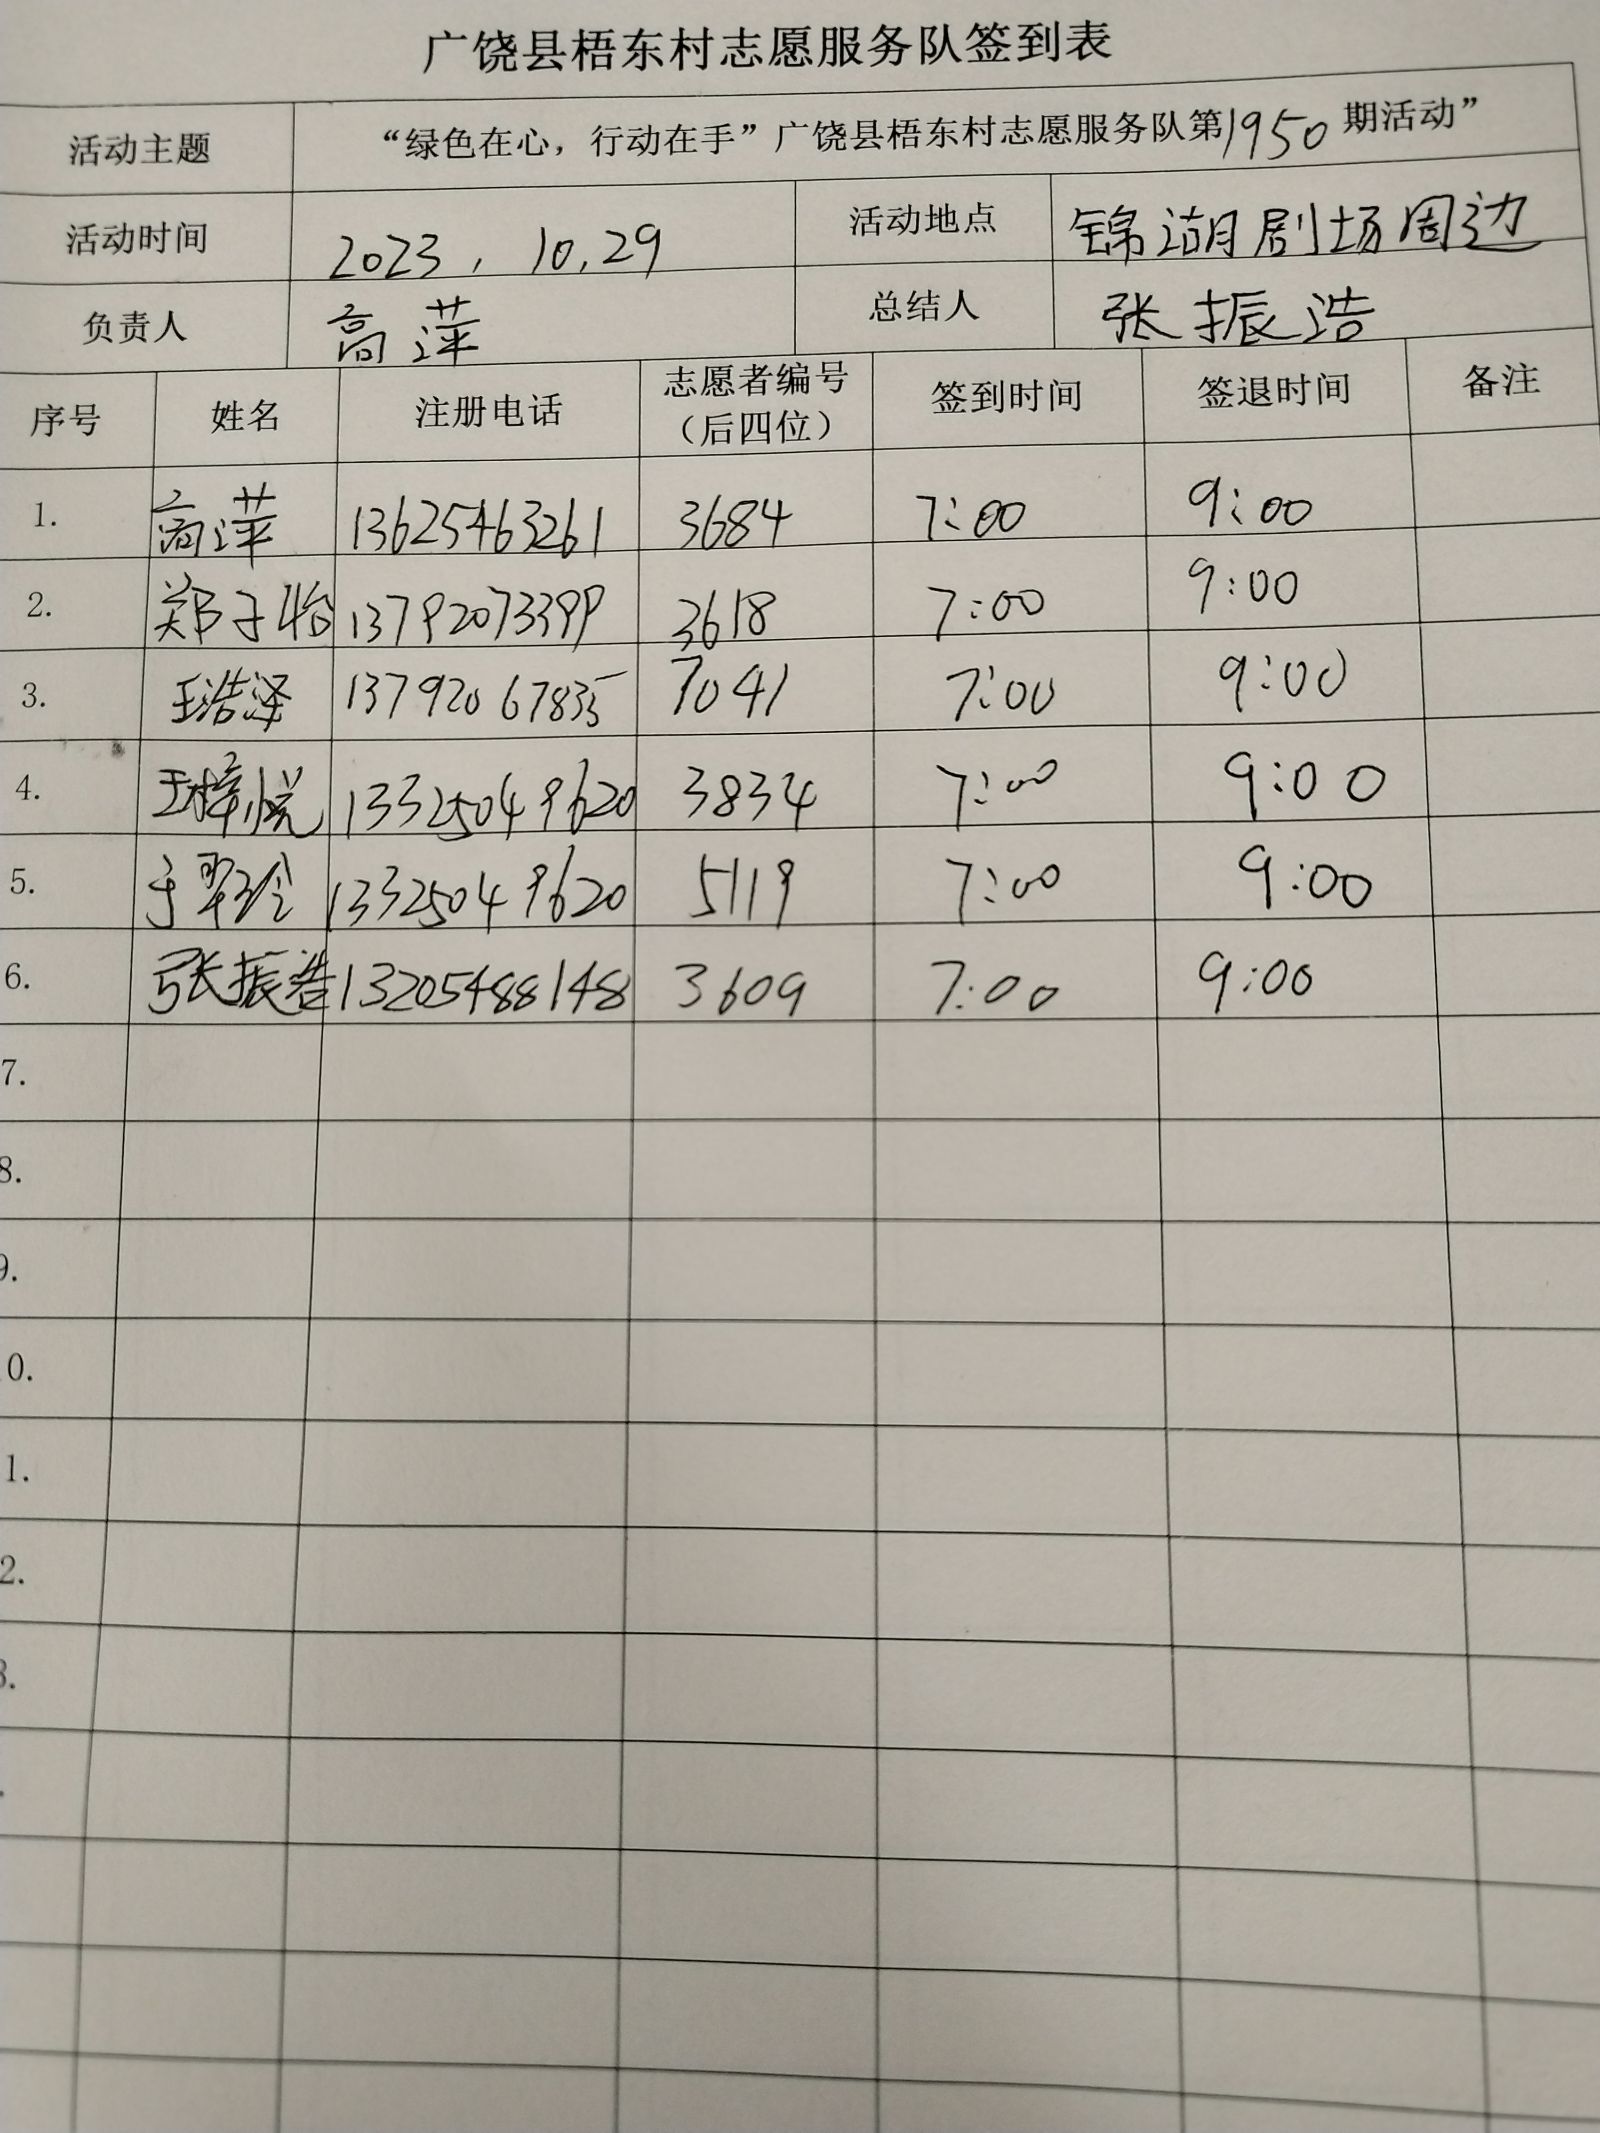 广饶县梧东村志愿服务队签到表
活动主题 “绿色在心，行动在手”广饶县梧东村志愿服务队第1950期活动”
活动时间 2023，10,29 活动地点 锦湖剧场周边
负责人 高萍 总结人 张振浩
序号 姓名 注册电话 志愿者编号（后四位） 签到时间 签退时间 备注
1. 高萍 13625463261 3684 7:00 9:00
2. 郑子怡 13792073399 3618 7:00 9:00
3. 王浩泽 13792067835 7041 7:00 9:00
4. 王梓悦 13325049620 3834 7:00 9:00
5. 于翠玲 13325049620 5119 7:00 9:00
6. 张振浩 13205488148 3609 7:00 9:00
7.
8.
9.
0.
1.
2.
3.